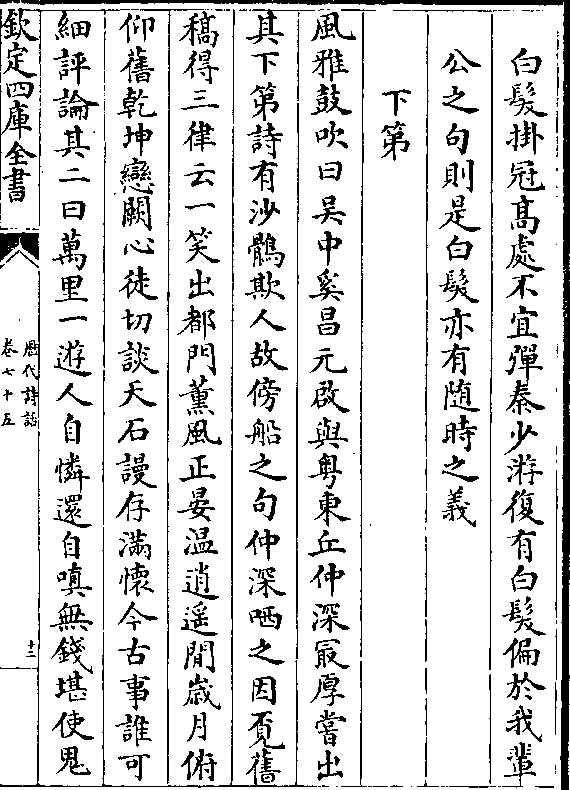 白髪掛冠髙處不宜彈秦少游復有白髪偏於我輩
公之句則是白髪亦有随時之義
下第
風雅鼓吹曰吳中奚昌元啟與粤東丘仲深㝡厚嘗出
其下第詩有沙鶻欺人故傍船之句仲深哂之因覓舊
稿得三律云一笑出都門薫風正晏温逍遥閒歳月俯
仰舊乾坤戀闕心徒切談天石謾存滿懷今古事誰可
細評論其二曰萬里一遊人自憐還自嗔無錢堪使鬼
欽定四庫全書
歴代詩話
卷七十五
十三